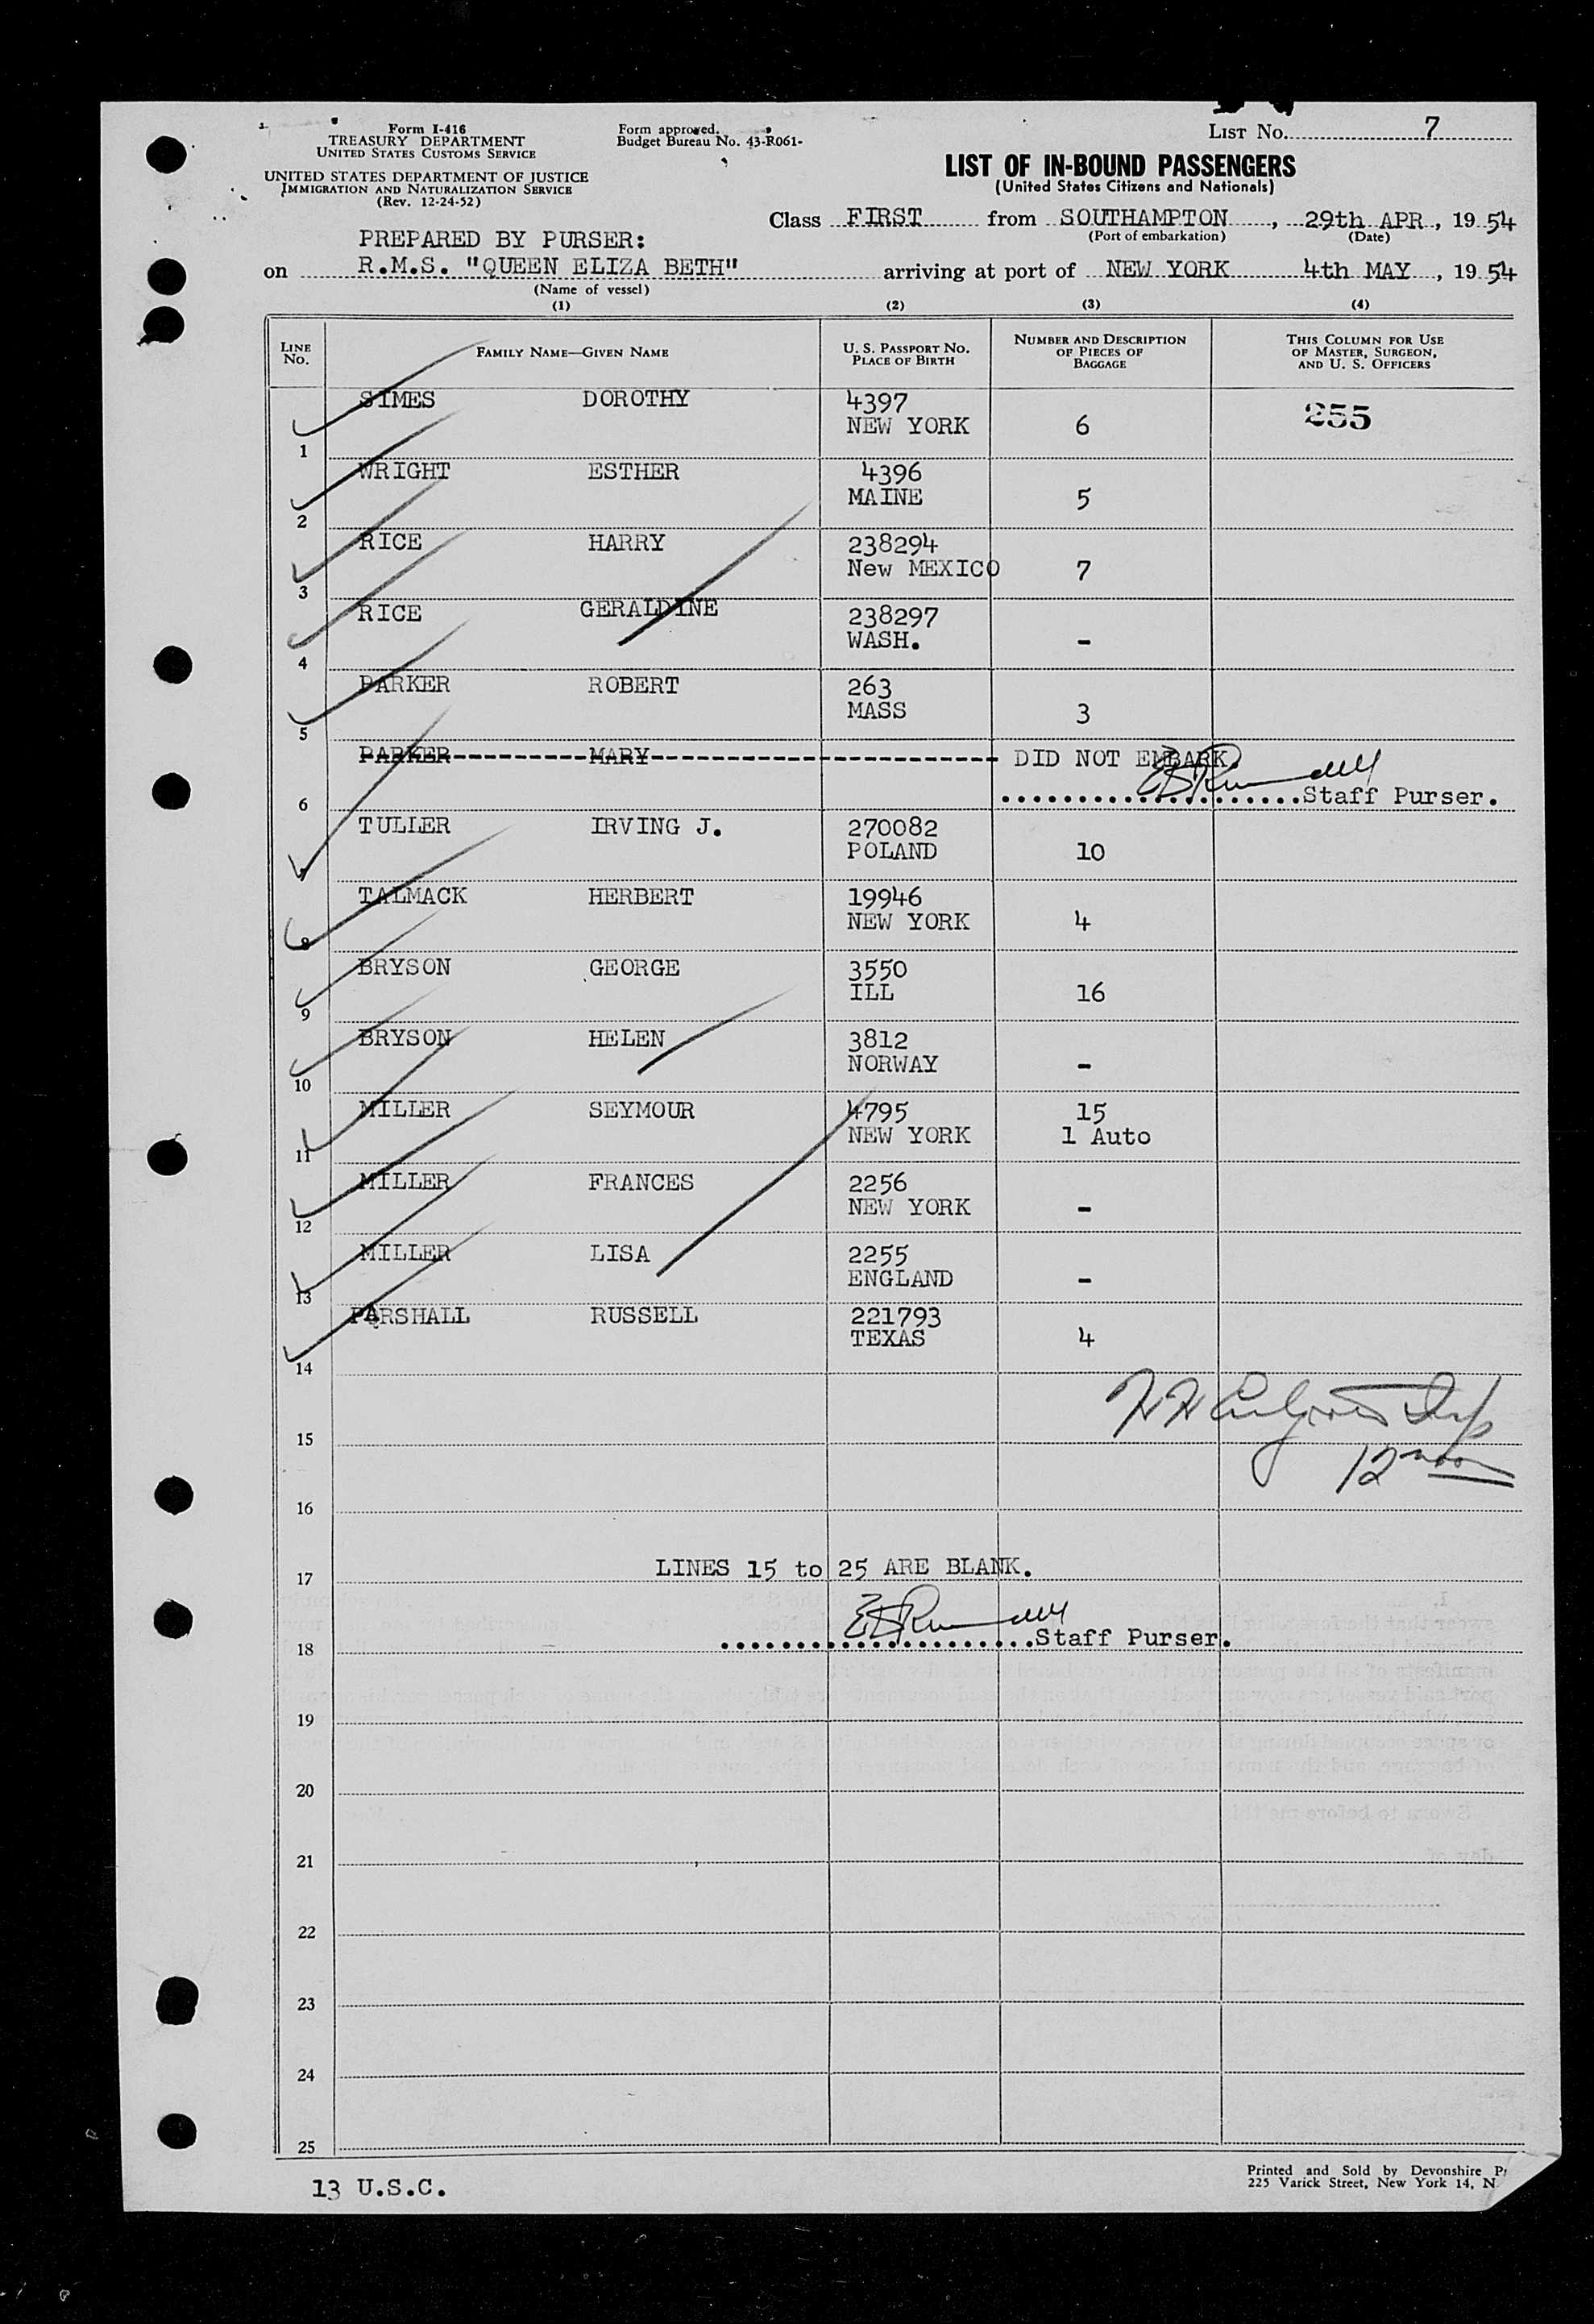 Form I-416
TREASURY DEPARTMENT
UNITED STATES CUSTOMS SERVICE
UNITED STATES DEPARTMENT OF JUSTICE
IMMIGRATION AND NATURALIZATION SERVICE
(Rev. 12-24-52)
Form approved.
Budget Bureau No. 43-R061-
LIST NO. 7
LIST OF IN-BOUND PASSENGERS
(United States Citizens and Nationals)
Class FIRST from SOUTHAMPTON, 29th APR, 1954
(Port of embarkation) (Date)
PREPARED BY PURSER:
on R.M.S. "QUEEN ELIZA BETH" arriving at port of NEW YORK 4th MAY, 1954
(Name of vessel)
(1) (2) (3) (4)
LINE NO. FAMILY NAME—GIVEN NAME U. S. PASSPORT NO. PLACE OF BIRTH NUMBER AND DESCRIPTION OF PIECES OF BAGGAGE THIS COLUMN FOR USE OF MASTER, SURGEON, AND U. S. OFFICERS
SIMES DOROTHY 4397 255
1 NEW YORK 6
WRIGHT ESTHER 4396
2 MAINE 5
RICE HARRY 238294
3 New MEXICO 7
RICE GERALDINE 238297
4 WASH. -
PARKER ROBERT 263
5 MASS 3
PARKER MARY DID NOT EMBARK.
6 Staff Purser.
TULLER IRVING J. 270082
7 POLAND 10
TALMACK HERBERT 19946
8 NEW YORK 4
BRYSON GEORGE 3550
9 ILL 16
BRYSON HELEN 3812
10 NORWAY -
MILLER SEYMOUR 4795 15
11 NEW YORK 1 Auto
MILLER FRANCES 2256
12 NEW YORK -
MILLER LISA 2255
13 ENGLAND -
PARSHALL RUSSELL 221793
14 TEXAS 4
15
12 noon
16
17 LINES 15 to 25 ARE BLANK.
18 Staff Purser.
19
20
21
22
23
24
25
13 U.S.C.
Printed and Sold by Devonshire
225 Varick Street, New York 14, N